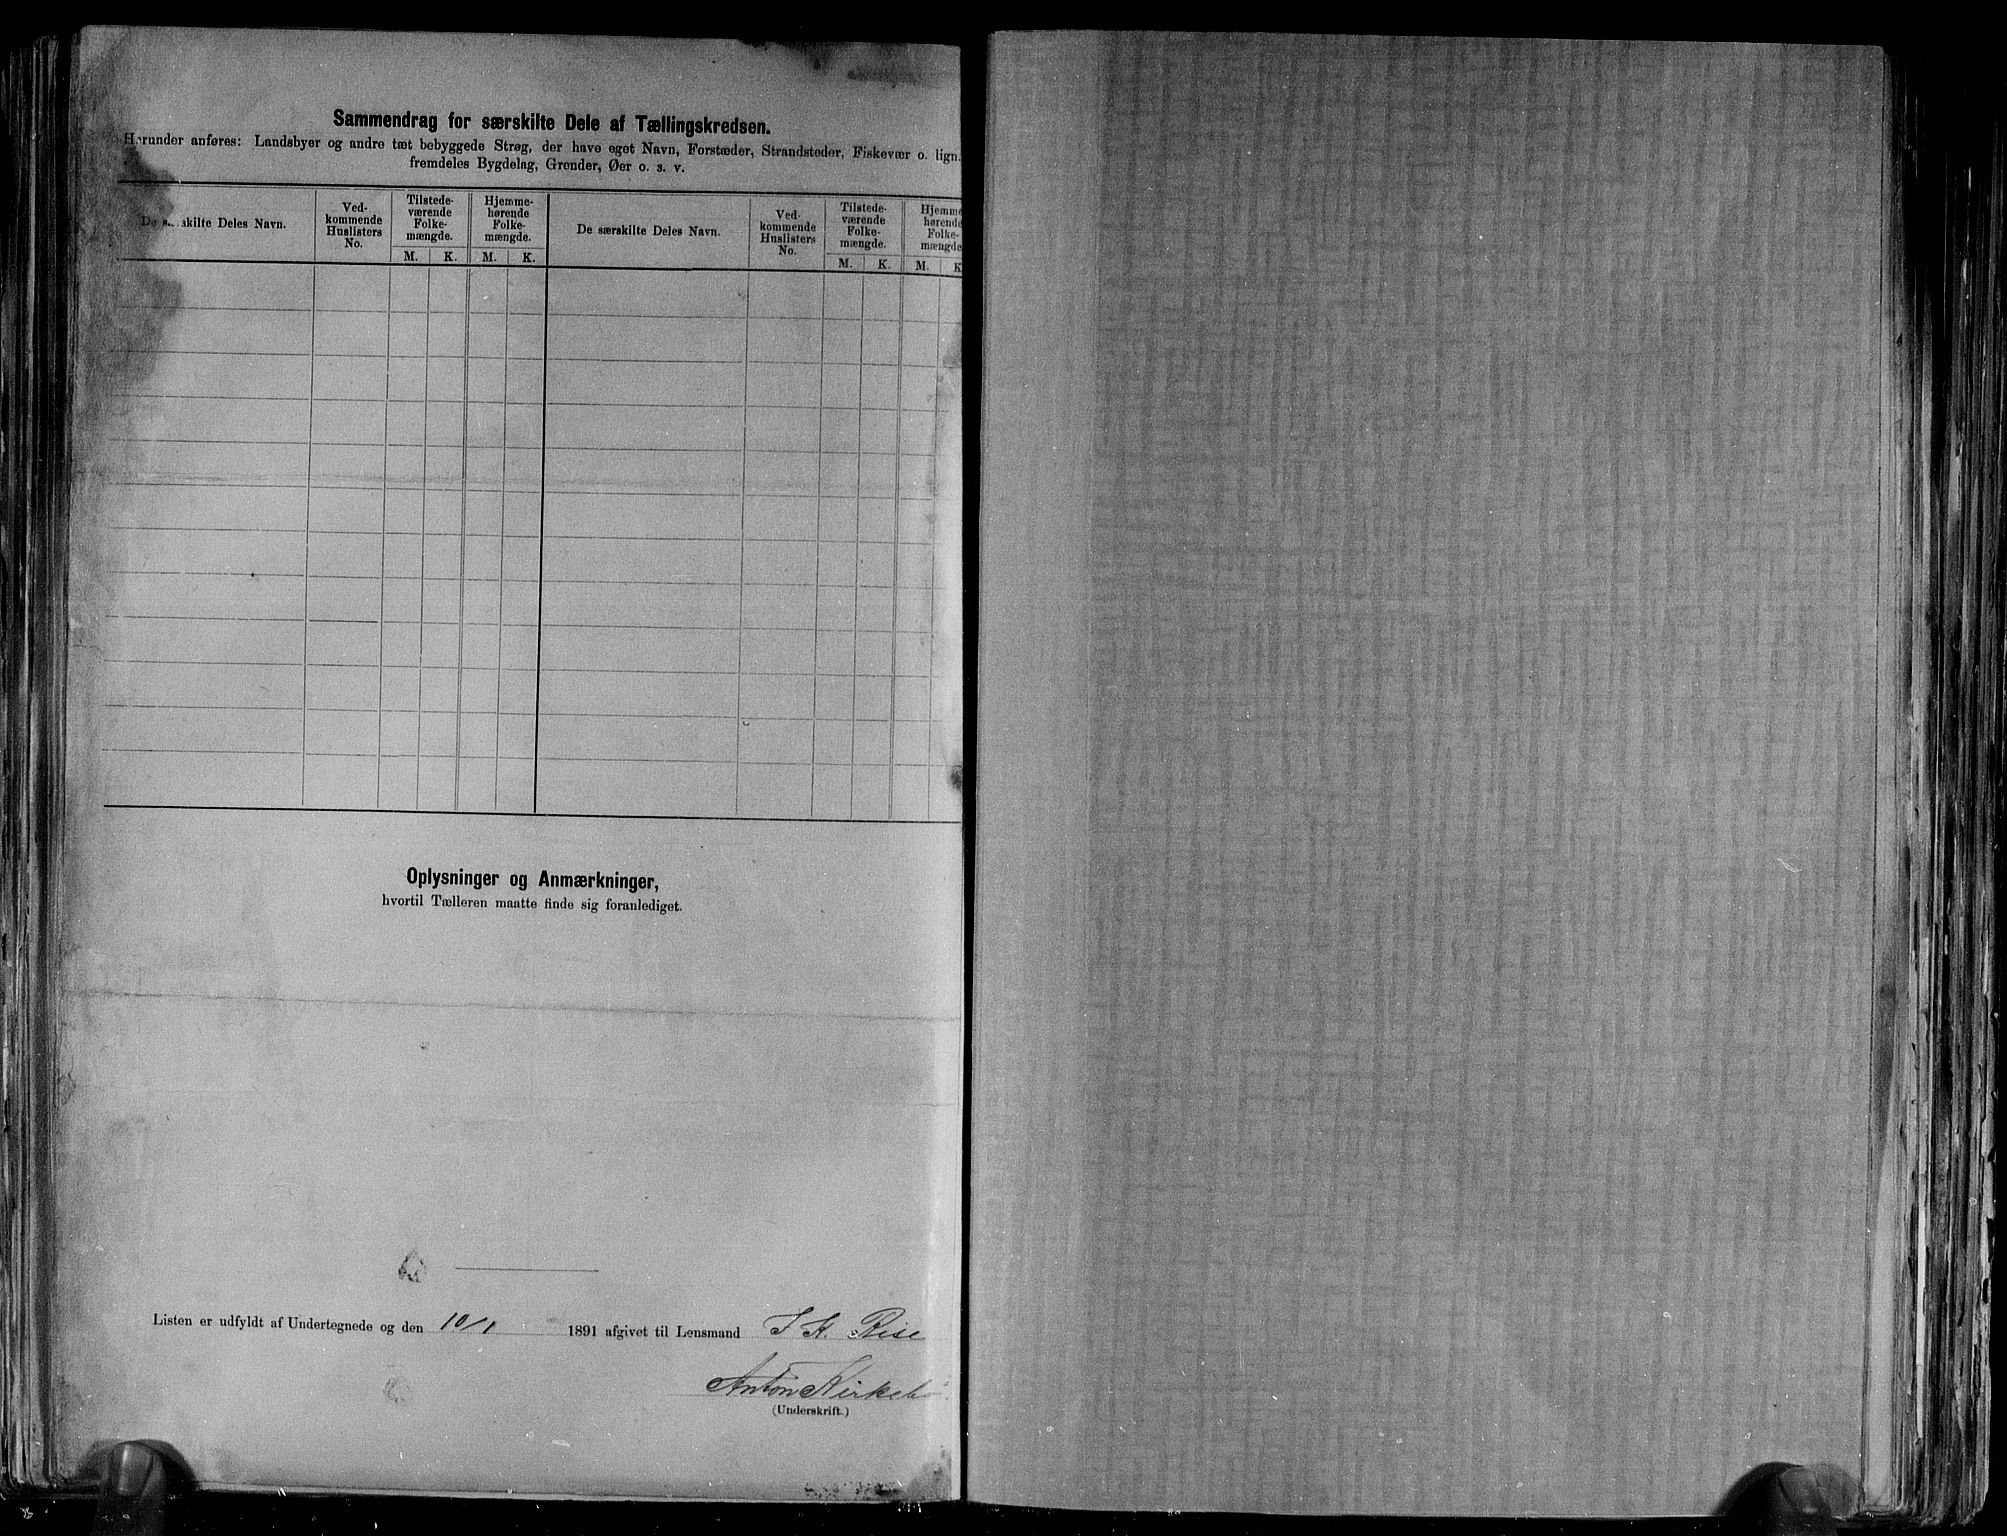 Sammendrag for særskilte Dele af Tællingskredsen.
Herunder anføres: Landsbyer og andre tæt bebyggede Strøg, der have eget Navn, Forstæder, Strandsteder, Fiskevær o. lign.
fremdeles Bygdelag, Grender, Øer o. s. v.
De særskilte Deles Navn.
Ved-
kommende
Huslisters
No.
Tilstede-
værende
Folke-
mængde.
M. K.
Hjemme-
hørende
Folke-
mængde.
M. K.
De særskilte Deles Navn.
Ved-
kommende
Huslisters
No.
Tilstede-
værende
Folke-
mængde.
M. K.
Hjemme
hørende
Folke-
mængde
M. K
Oplysninger og Anmærkninger,
hvortil Tælleren maatte finde sig foranlediget.
Listen er udfyldt af Undertegnede og den 10/1 1891 afgivet til Lensmand Rise
Anton Kirkebø
(Underskrift.)